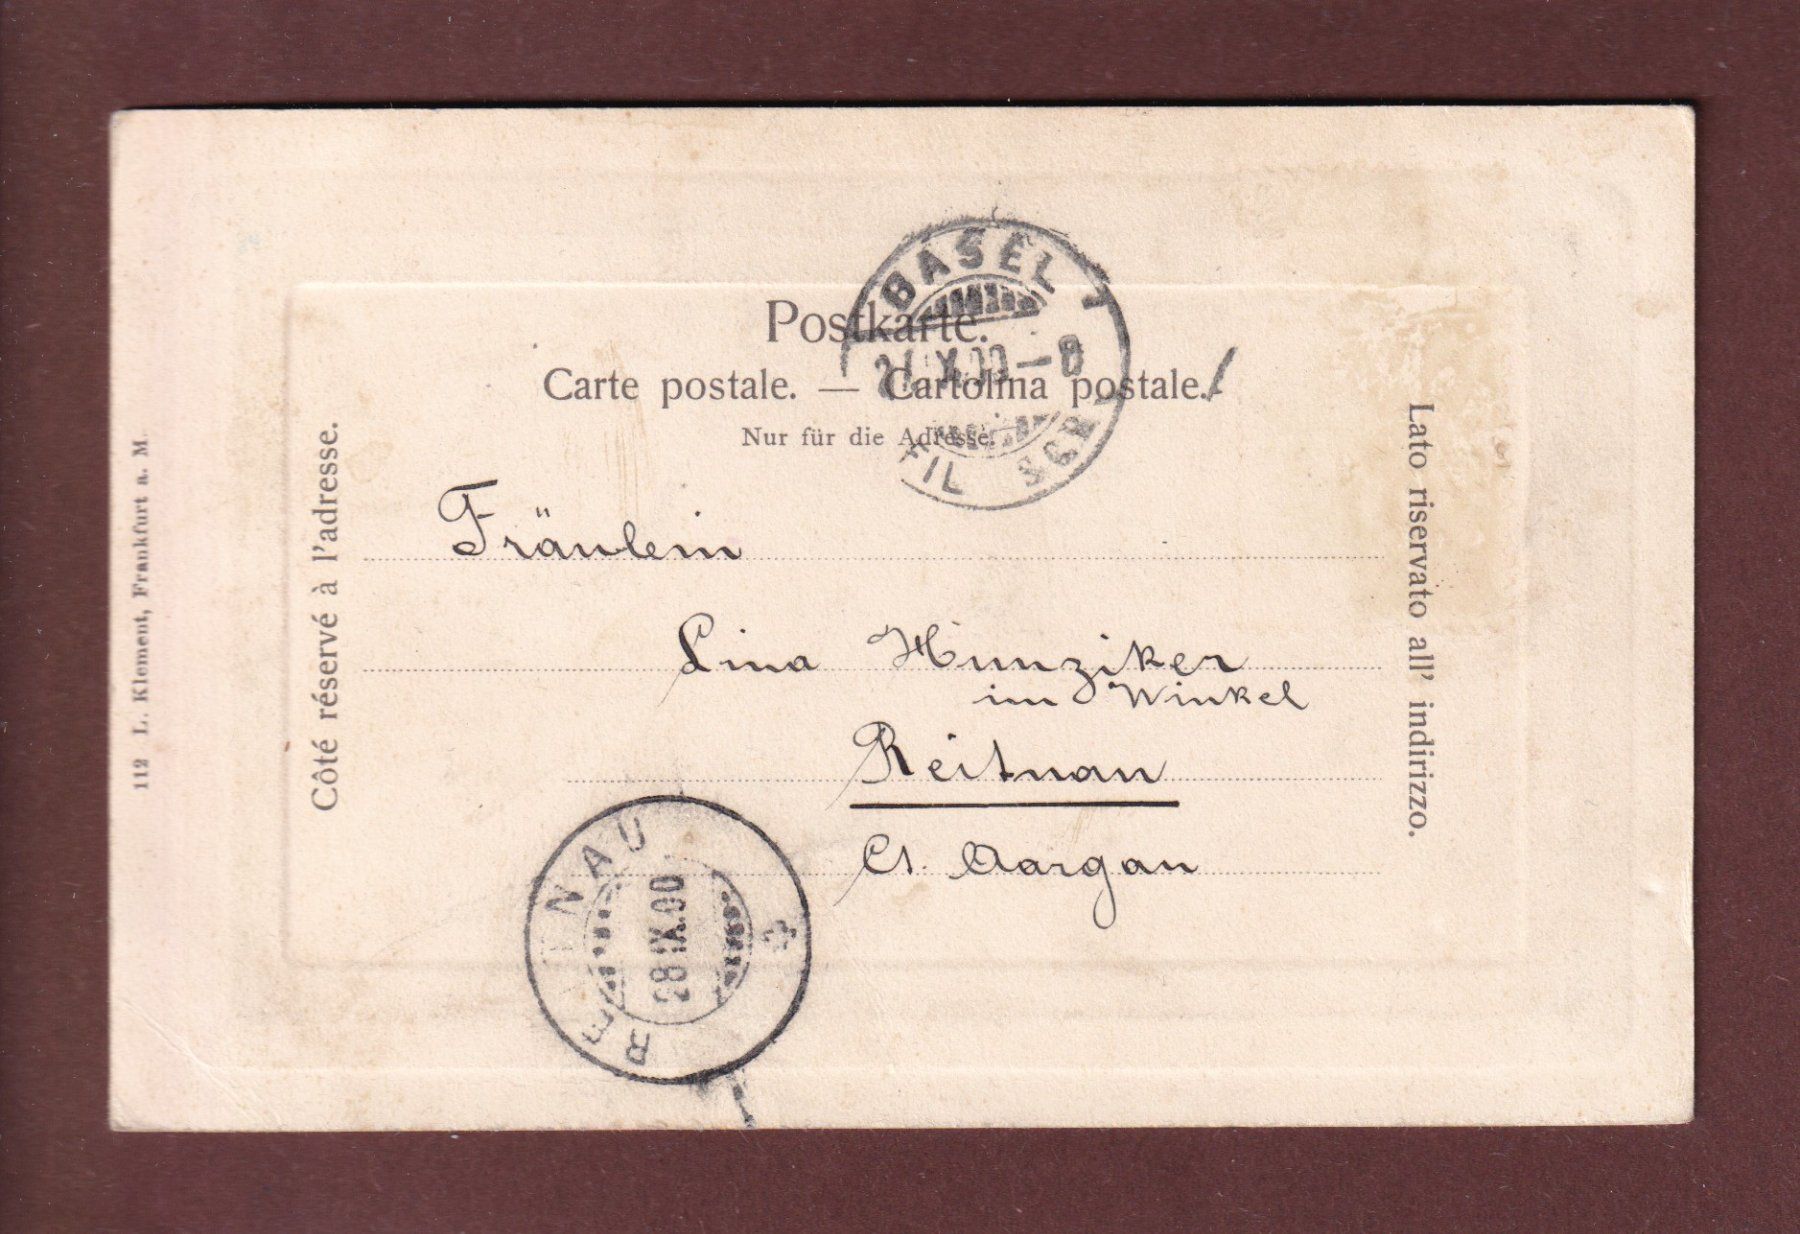 Postkarte.
Carte postale. — Cartolina postale.
Nur für die Adresse.
Côté réservé à l'adresse.
Lato riservato all' indirizzo.
112 L. Klement, Frankfurt a. M.
BASEL 1
FIL
Fräulein
Lina Hunziker
im Winkel
Reitnau
Ct. Aargau
REITNAU
28 IX.00